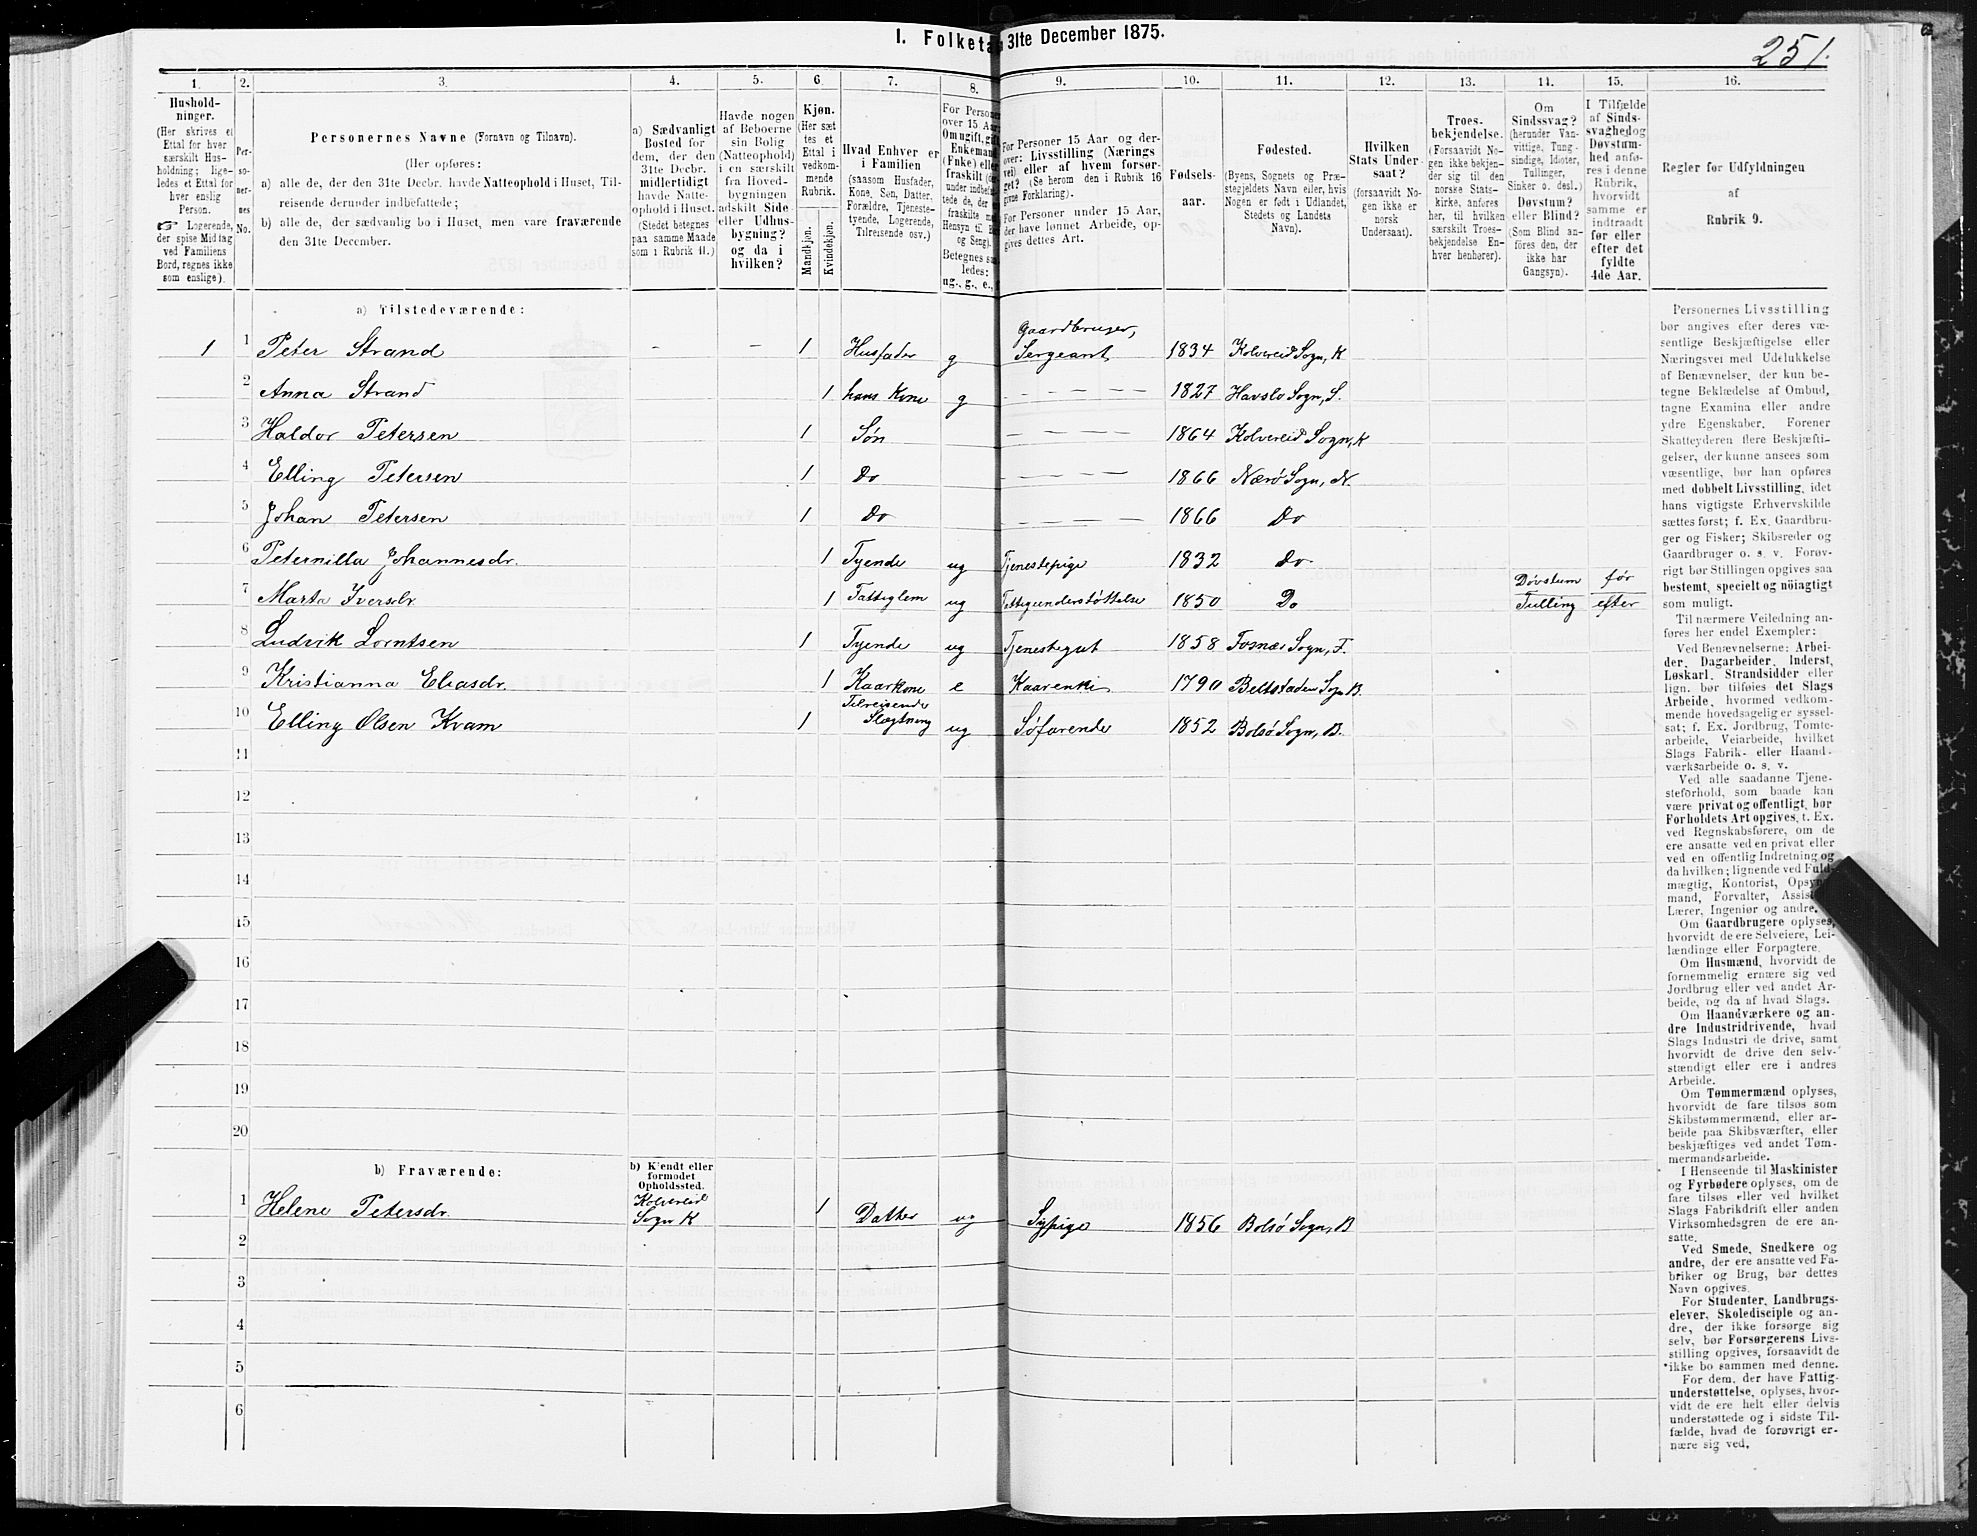 I. Folketa 31te December 1875.
251.
1. 2. 3. 4. 5. 6. 7. 8. 9. 10. 11. 12. 13. 14. 15. 16.
Hushold-
ninger.
(Her skrives et
Ettal for hver
særskilt Hus-
holdning; lige-
ledes et Ettal for
hver enslig
Person.
☞ Logerende,
der spise Midtag
ved Familiens
Bord, regnes ikke
som enslige).
Per-
so-
ner-
nes
No.
Personernes Navne (Fornavn og Tilnavn).
(Her opføres:
a) alle de, der den 31te Decbr. havde Natteophold i Huset, Til-
reisende derunder indbefattede;
b) alle de, der sædvanlig bo i Huset, men vare fraværende
den 31te December.
a) Sædvanligt
Bosted for
dem, der den
31te Decbr.
midlertidigt
havde Natte-
ophold i Huset.
(Stedet betegnes
paa samme Maade
som i Rubrik 11.)
Havde nogen
af Beboerne
sin Bolig
(Natteophold)
i en særskilt
fra Hoved-
bygningen
adskilt Side-
eller Udhus-
bygning?
og da i
hvilken?
Kjøn.
(Her sæt
tes et
Ettal i
vedkom-
mende
Rubrik.
Mandkjøn.
Kvindekjøn.
Hvad Enhver er
i Familien
(saasom Husfader,
Kone, Søn, Datter,
Forældre, Tjeneste-
tyende, Logerende,
Tilreisende osv.)
For Person
over 15 Aa
Om ugift, gi
Enkeman
(Enke) elle
fraskilt
under indbef
tede de, der
fraskilte m
Hensyn til
og Seng).
Betegnes sa
ledes:
ug., g., e.,
For Personer 15 Aar og der-
over: Livsstilling (Nærings
vei) eller af hvem forsør-
get? (Se herom den i Rubrik 16
givne Forklaring).
For Personer under 15 Aar,
der have lønnet Arbeide, op-
gives dettes Art.
Fødsels-
aar.
Fødested.
(Byens, Sognets og Præ-
stegjeldets Navn eller, hvis
Nogen er født i Udlandet,
Stedets og Landets
Navn).
Hvilken
Stats Under-
saat?
(forsaavidt No-
gen ikke er
norsk
Undersaat).
Troes-
bekjendelse.
(Forsaavidt No-
gen ikke bekjen-
der sig til den
norske Stats-
kirke, anføres
her, til hvilken
særskilt Troes-
bekjendelse En-
hver henhører).
Om
Sindssvag?
(herunder Van-
vittige, Tung-
sindige, Idioter,
Tullinger,
Sinker o. desl.)
Døvstum?
eller Blind?
(Som Blind an-
føres den, der
ikke har
Gangsyn).
I Tilfælde
af Sinds-
svaghed og
Døvstum-
hed anfø-
res i denne
Rubrik,
hvorvidt
samme er
indtraadt
før eller
efter det
fyldte
4de Aar.
Regler for Udfyldningen
af
Rubrik 9.
a) Tilstedeværende:
Gaardbruger,
1 1 Peter Strand - - 1 Husfader g Sergeant 1834 Kolvereid Sogn, K
2 Anna Strand 1 hans Kone g - - - - 1827 Havslo Sogn, S.
3 Haldor Petersen 1 Søn - - - - 1864 Kolvereid Sogn, K
4 Elling Petersen 1 Do - - - - 1866 Nærø Sogn, N.
5 Johan Petersen 1 Do - - - - 1866 Do
6 Peternilla Johannesdr. 1 Tyende ug Tjenestepige 1832 Do
Døvstum før
7 Marta Iversdr. 1 Fattiglem ug Fattigunderstøttelse 1850 Do Tulling efter
8 Ludvik Lorntsen 1 Tyende ug Tjenestegut 1858 Fosnæs Sogn, F.
9 Kristianna Eliasdr. 1 Kaarkone e Kaarenke 1790 Beitstaden Sogn B.
Tilreisende
10 Elling Olsen Kvam 1 Slægtning ug Søfarende 1852 Bolsø Sogn, B.
11
12
13
14
15
16
17
18
19
20
b) Fraværende:
b) Kjendt eller
formodet
Opholdssted.
Kolvereid
1 Helene Petersdr. Sogn K 1 Datter ug Sypige 1856 Bolsø Sogn, B
2
3
4
5
6
Personernes Livsstilling
bør angives efter deres væ-
sentlige Beskjæftigelse eller
Næringsvei med Udelukkelse
af Benævnelser, der kun be-
tegne Beklædelse af Ombud,
tagne Examina eller andre
ydre Egenskaber. Forener
Skatteyderen flere Beskjæfti-
gelser, der kunne ansees som
væsentlige, bør han opføres
med dobbelt Livsstilling, idet
hans vigtigste Erhvervskilde
sættes først; f. Ex. Gaardbru-
ger og Fisker; Skibsreder og
Gaardbruger o. s. v. Forøv-
rigt bør Stillingen opgives saa
bestemt, specielt og nöiagtigt
som muligt.
Til nærmere Veiledning an-
føres her endel Exempler:
Ved Benævnelserne: Arbei-
der, Dagarbeider, Inderst,
Løskarl, Strandsidder eller
lign. bør tilføies det Slags
Arbeide, hvormed vedkom-
mende hovedsagelig er syssel-
sat; f. Ex. Jordbrug, Tomte-
arbeide, Veiarbeide, hvilket
Slags Fabrik- eller Haand-
værksarbeide o. s. v.
Ved alle saadanne Tjene-
steforhold, som baade kan
være privat og offentligt, bør
Forholdets Art opgives, t. Ex.
ved Regnskabsførere, om de
ere ansatte ved en privat eller
ved en offentlig Indretning og
da hvilken; lignende ved Fuld-
mægtig, Kontorist, Opsyns
mand, Forvalter, Assis
Lærer, Ingeniør og andre.
Om Gaardbrugere oplyses,
hvorvidt de ere Selveiere, Lei-
lændinge eller Forpagtere.
Om Husmænd, hvorvidt de
fornemmelig ernære sig ved
Jordbrug eller ved andet Ar-
beide, og da af hvad Slags.
Om Haandværkere og an-
dre Industridrivende, hvad
Slags Industri de drive, samt
hvorvidt de drive den selv-
stændigt eller ere i andres
Arbeide.
Om Tømmermænd oplyses,
hvorvidt de fare tilsøs som
Skibstømmermænd, eller ar-
beide paa Skibsværfter, eller
beskjæftiges ved andet Tøm-
mermandsarbeide.
I Henseende til Maskinister
og Fyrbødere oplyses, om de
fare tilsøs eller ved hvilket
Slags Fabrikdrift eller anden
Virksomhedsgren de ere an-
satte.
Ved Smede, Snedkere og
andre, der ere ansatte ved Fa-
briker og Brug, bør dettes
Navn opgives.
For Studenter, Landbrugs-
elever, Skoledisciple og an-
dre, der ikke forsørge sig
selv, bør Forsørgerens Livs-
stilling opgives, forsaavidt de
ikke bo sammen med denne.
For dem, der have Fattig-
understøttelse, oplyses, hvor-
vidt de ere helt eller delvis
understøttede og i sidste Til-
fælde, hvad de forøvrigt er-
nære sig ved.